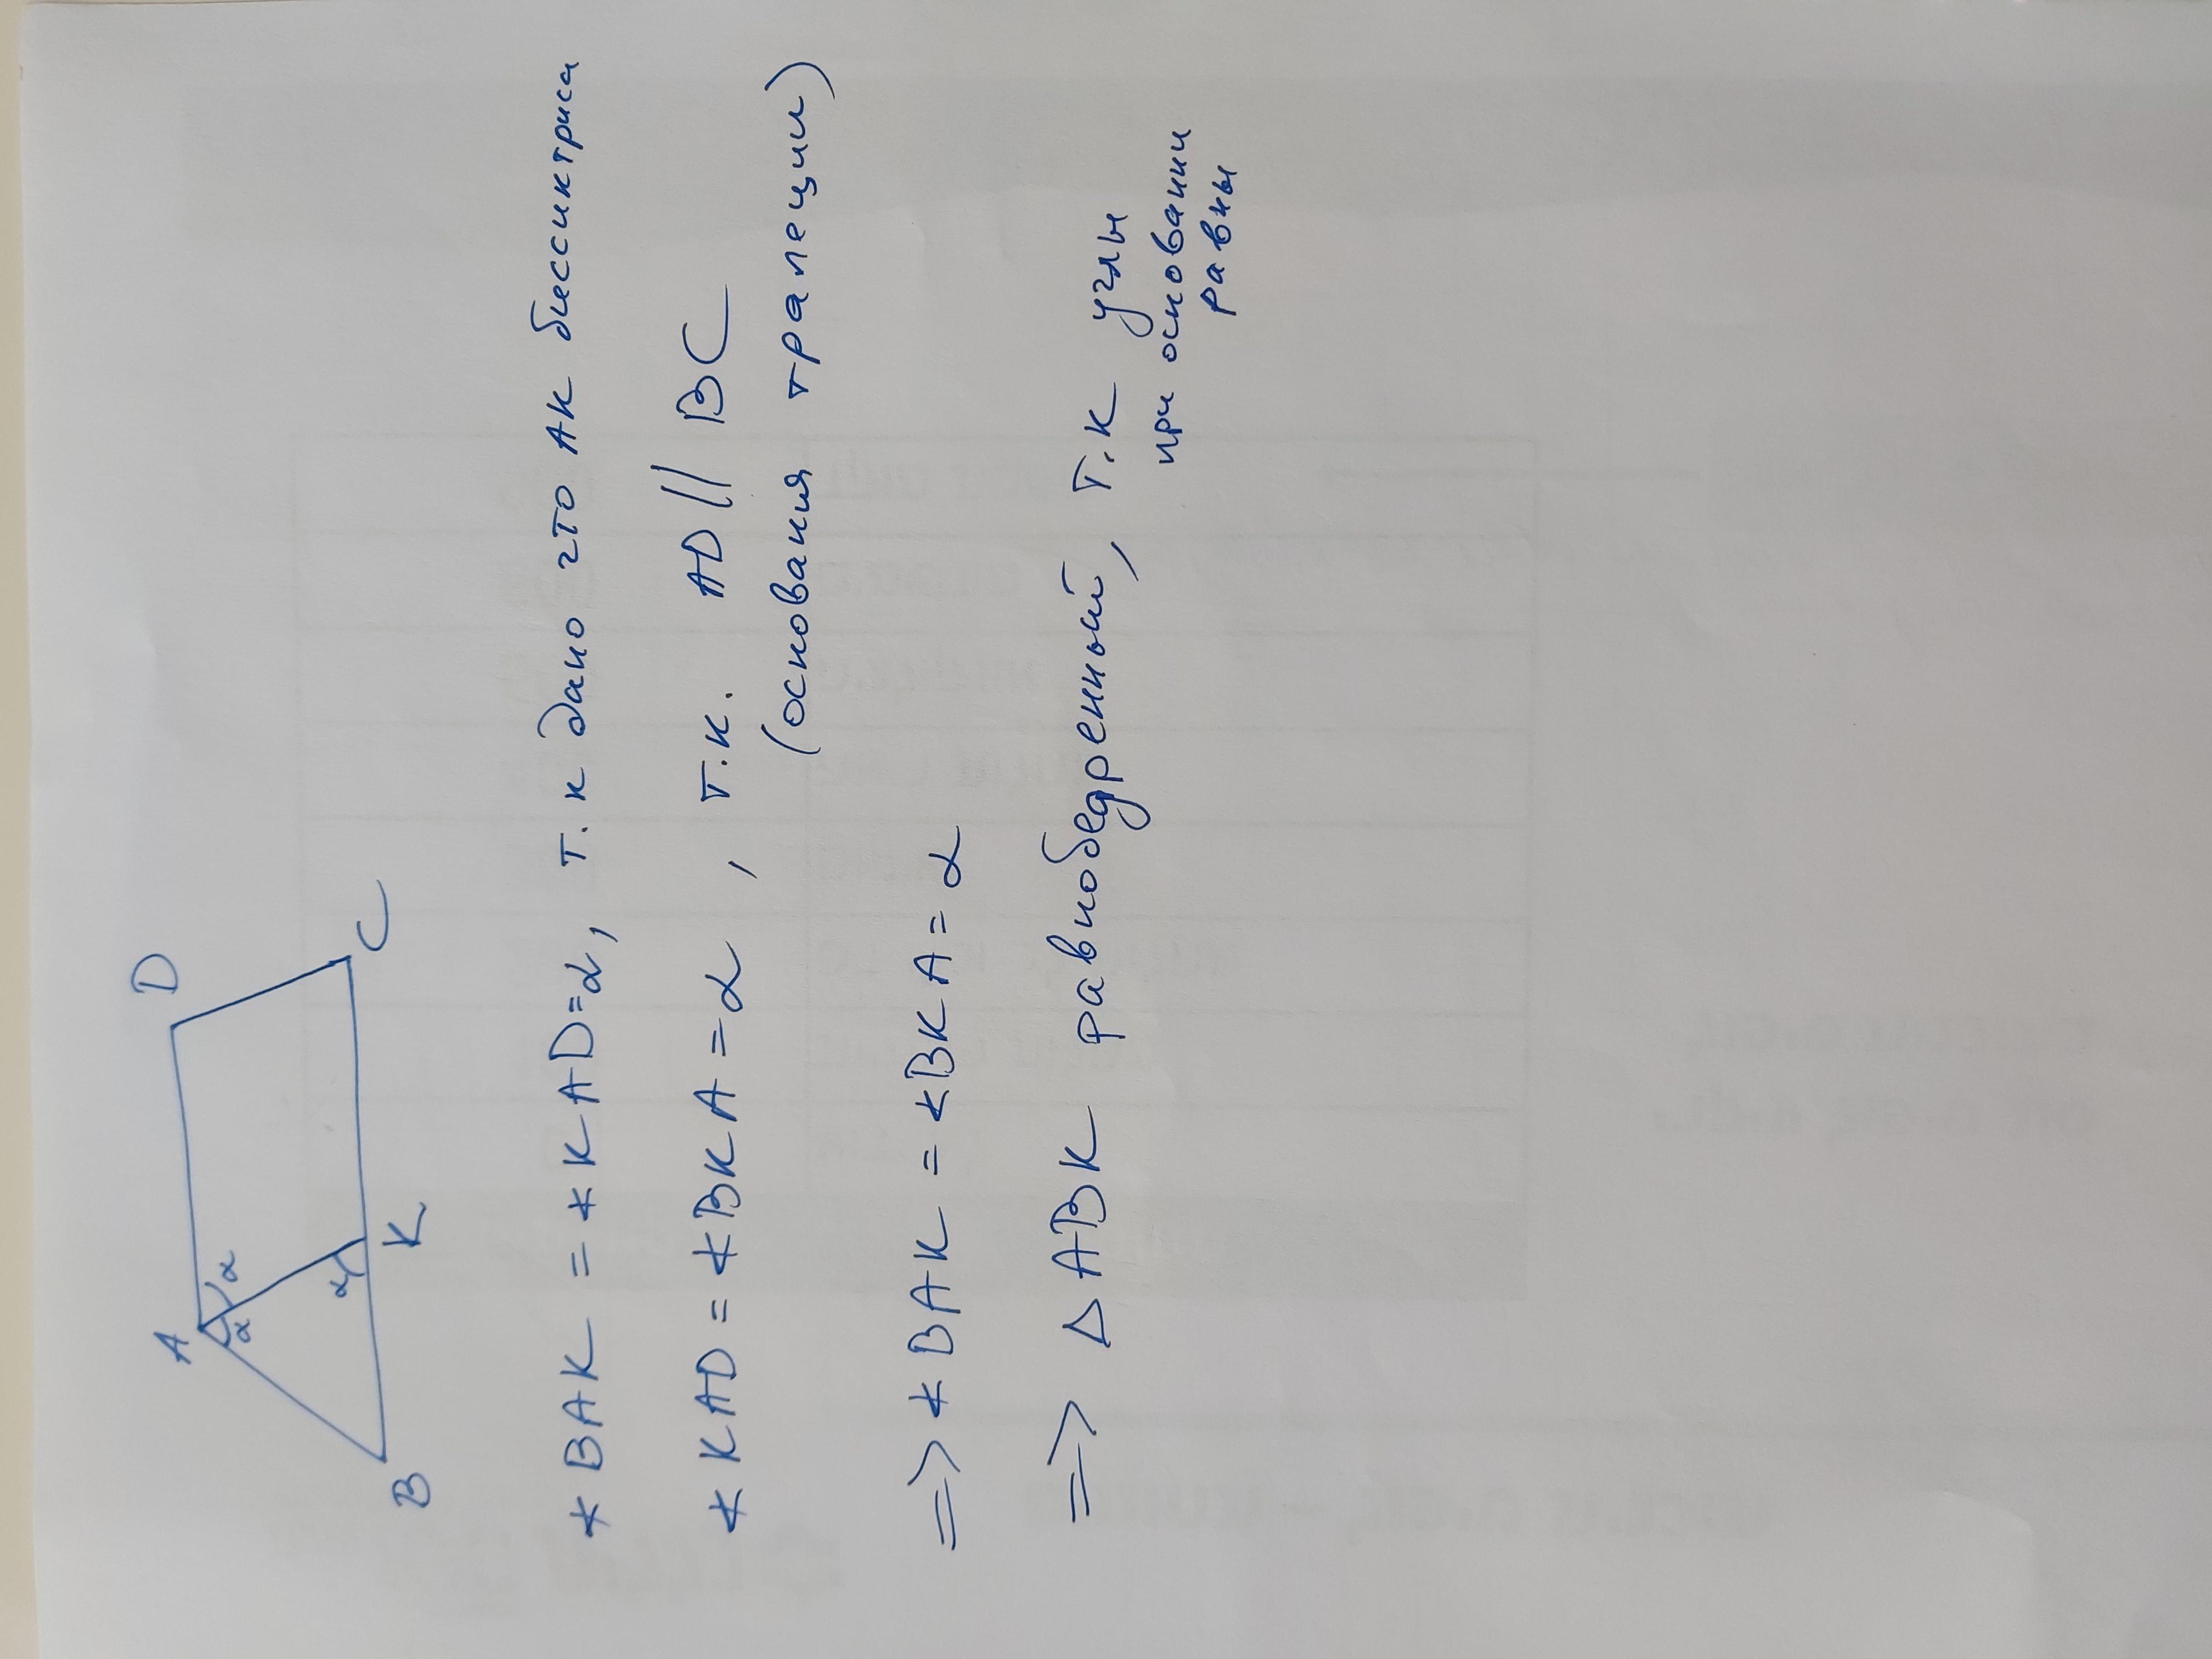 A
D
α
α
α
B
K
C
∢BAK = ∢KAD = α, т.к дано что AK биссиктриса
∢KAD = ∢BKA = α, т.к. AD || BC
(основания трапеции)
=> ∢BAK = ∢BKA = α
=> Δ ABK равнобедренный, т.к углы
при основании
равны